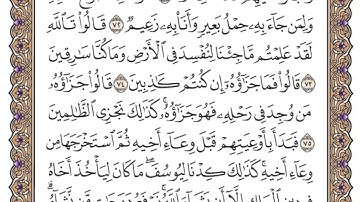 وَلِمَن جَآءَ بِهِۦ حِمْلُ بَعِيرٍ وَأَنَا۠ بِهِۦ زَعِيمٌ ٧٢ قَالُوا۟ تَٱللَّهِ
لَقَدْ عَلِمْتُم مَّا جِئْنَا لِنُفْسِدَ فِى ٱلْأَرْضِ وَمَا كُنَّا سَٰرِقِينَ
٧٣ قَالُوا۟ فَمَا جَزَٰٓؤُهُۥٓ إِن كُنتُمْ كَٰذِبِينَ ٧٤ قَالُوا۟ جَزَٰٓؤُهُۥ
مَن وُجِدَ فِى رَحْلِهِۦ فَهُوَ جَزَٰٓؤُهُۥ كَذَٰلِكَ نَجْزِى ٱلظَّٰلِمِينَ
٧٥ فَبَدَأَ بِأَوْعِيَتِهِمْ قَبْلَ وِعَآءِ أَخِيهِ ثُمَّ ٱسْتَخْرَجَهَا مِن
وِعَآءِ أَخِيهِ كَذَٰلِكَ كِدْنَا لِيُوسُفَ مَا كَانَ لِيَأْخُذَ أَخَاهُ
فِى دِينِ ٱلْمَلِكِ إِلَّآ أَن يَشَآءَ ٱللَّهُ نَرْفَعُ دَرَجَٰتٍ مَّن نَّشَآءُ